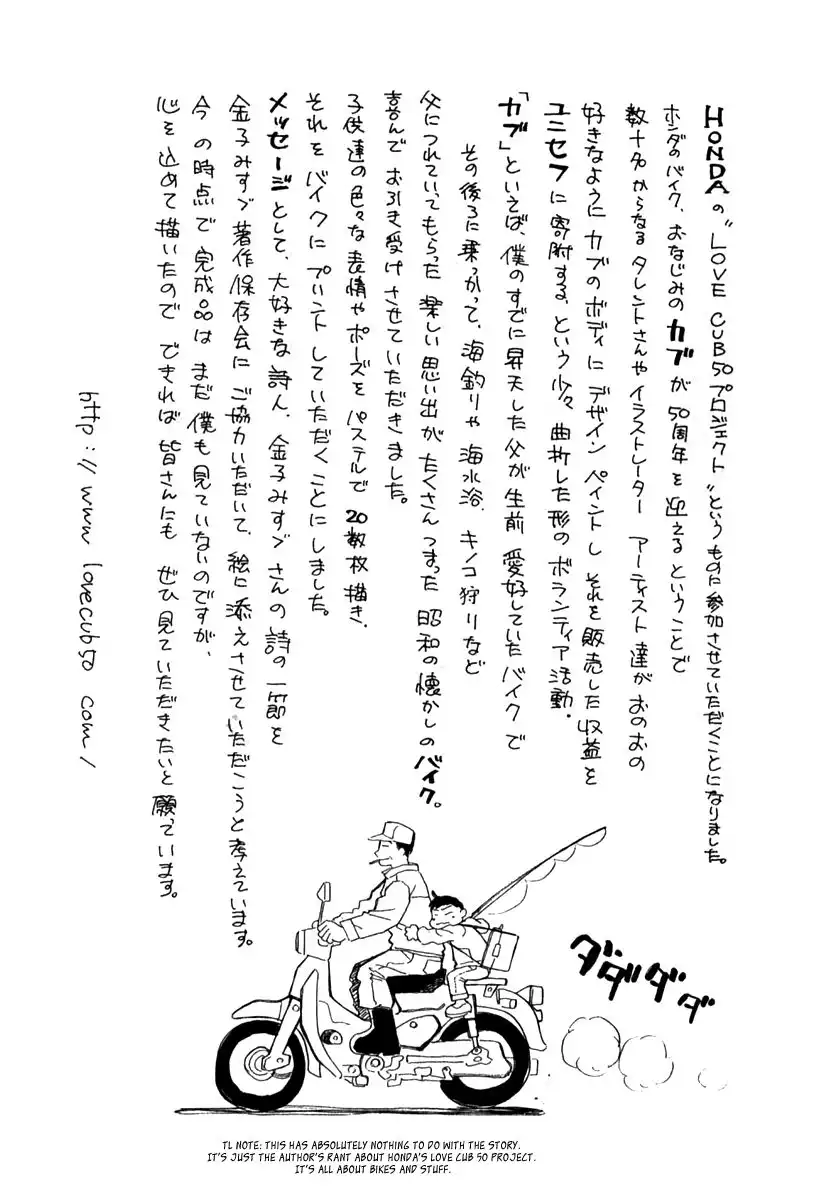 HONDAの〝LOVE CUB 50プロジェクト〟というものに参加させていただくことになりました。
ホンダのバイク、おなじみのカブが50周年を迎えるということで
数十名からなるタレントさんやイラストレーター アーティスト達がおのおの
好きなようにカブのボディにデザインペイントし それを販売した収益を
ユニセフに寄附する、という少々曲折した形のボランティア活動。
「カブ」といえば、僕のすでに昇天した父が生前 愛好していたバイクで
その後ろに乗っかって、海釣りや海水浴、キノコ狩りなど
父につれていってもらった 楽しい思い出が たくさんつまった 昭和の懐かしのバイク。
喜んで お引き受けさせていただきました。
子供達の色々な表情やポーズを パステルで 20数枚描き、
それを バイクに プリントしていただくことにしました。
メッセージとして、大好きな詩人、金子みすゞさんの詩の一節を
金子みすゞ著作保存会に ご協力いただいて、絵に添えさせていただこうと考えています。
今の時点で 完成品は まだ僕も見ていないのですが、
心を込めて描いたので できれば 皆さんにも ぜひ見ていただきたいと 願っています。
http://www lovecub50 com/
ダダダダ
TL NOTE: THIS HAS ABSOLUTELY NOTHING TO DO WITH THE STORY.
IT'S JUST THE AUTHOR'S RANT ABOUT HONDA'S LOVE CUB 50 PROJECT.
IT'S ALL ABOUT BIKES AND STUFF.